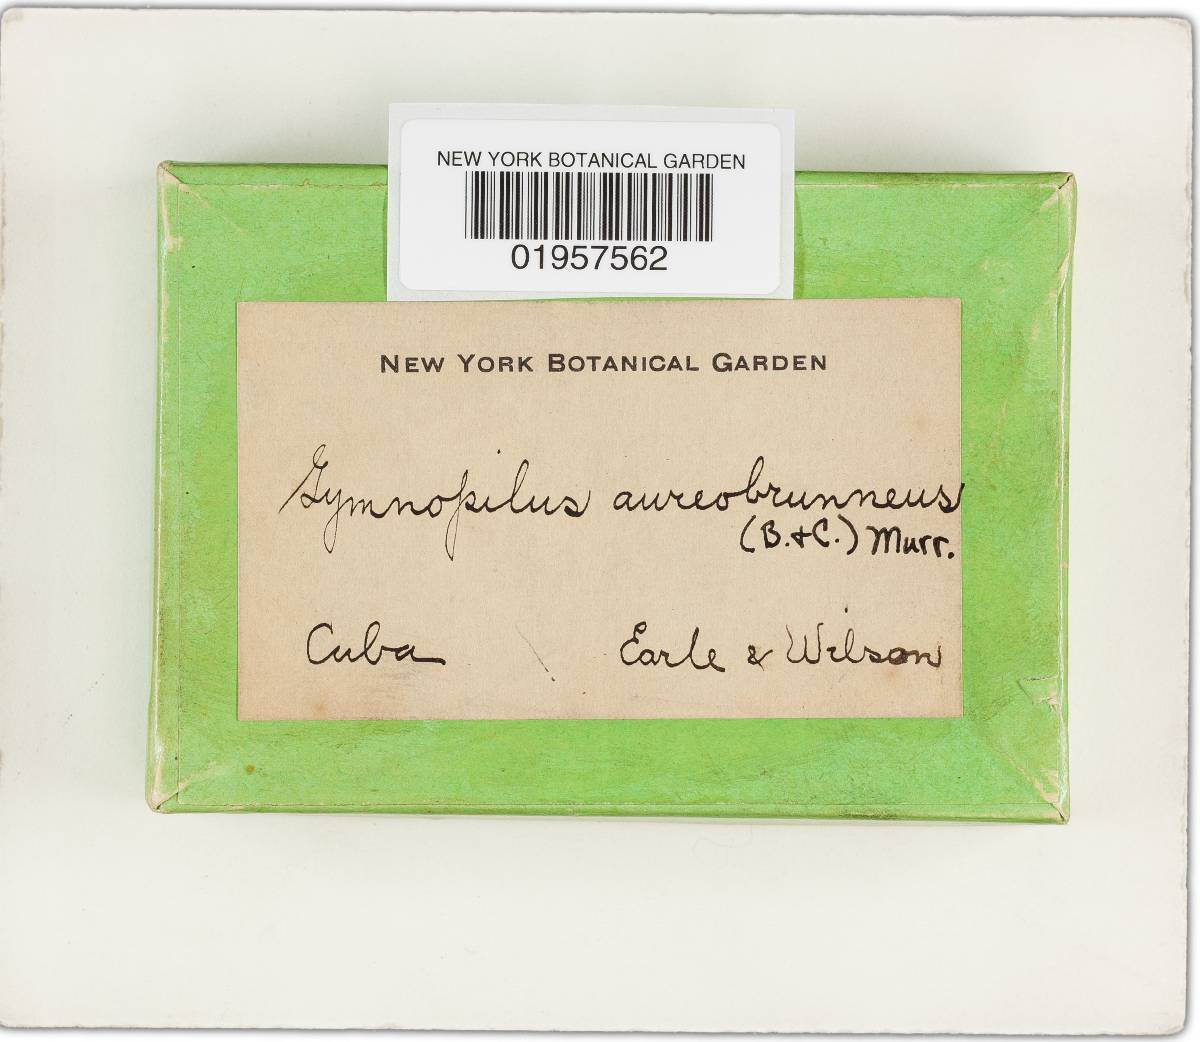 NEW YORK BOTANICAL GARDEN
01957562
NEW YORK BOTANICAL GARDEN
Gymnopilus aureobrunneus
(B.+C.) Murr.
Cuba Earle & Wilson